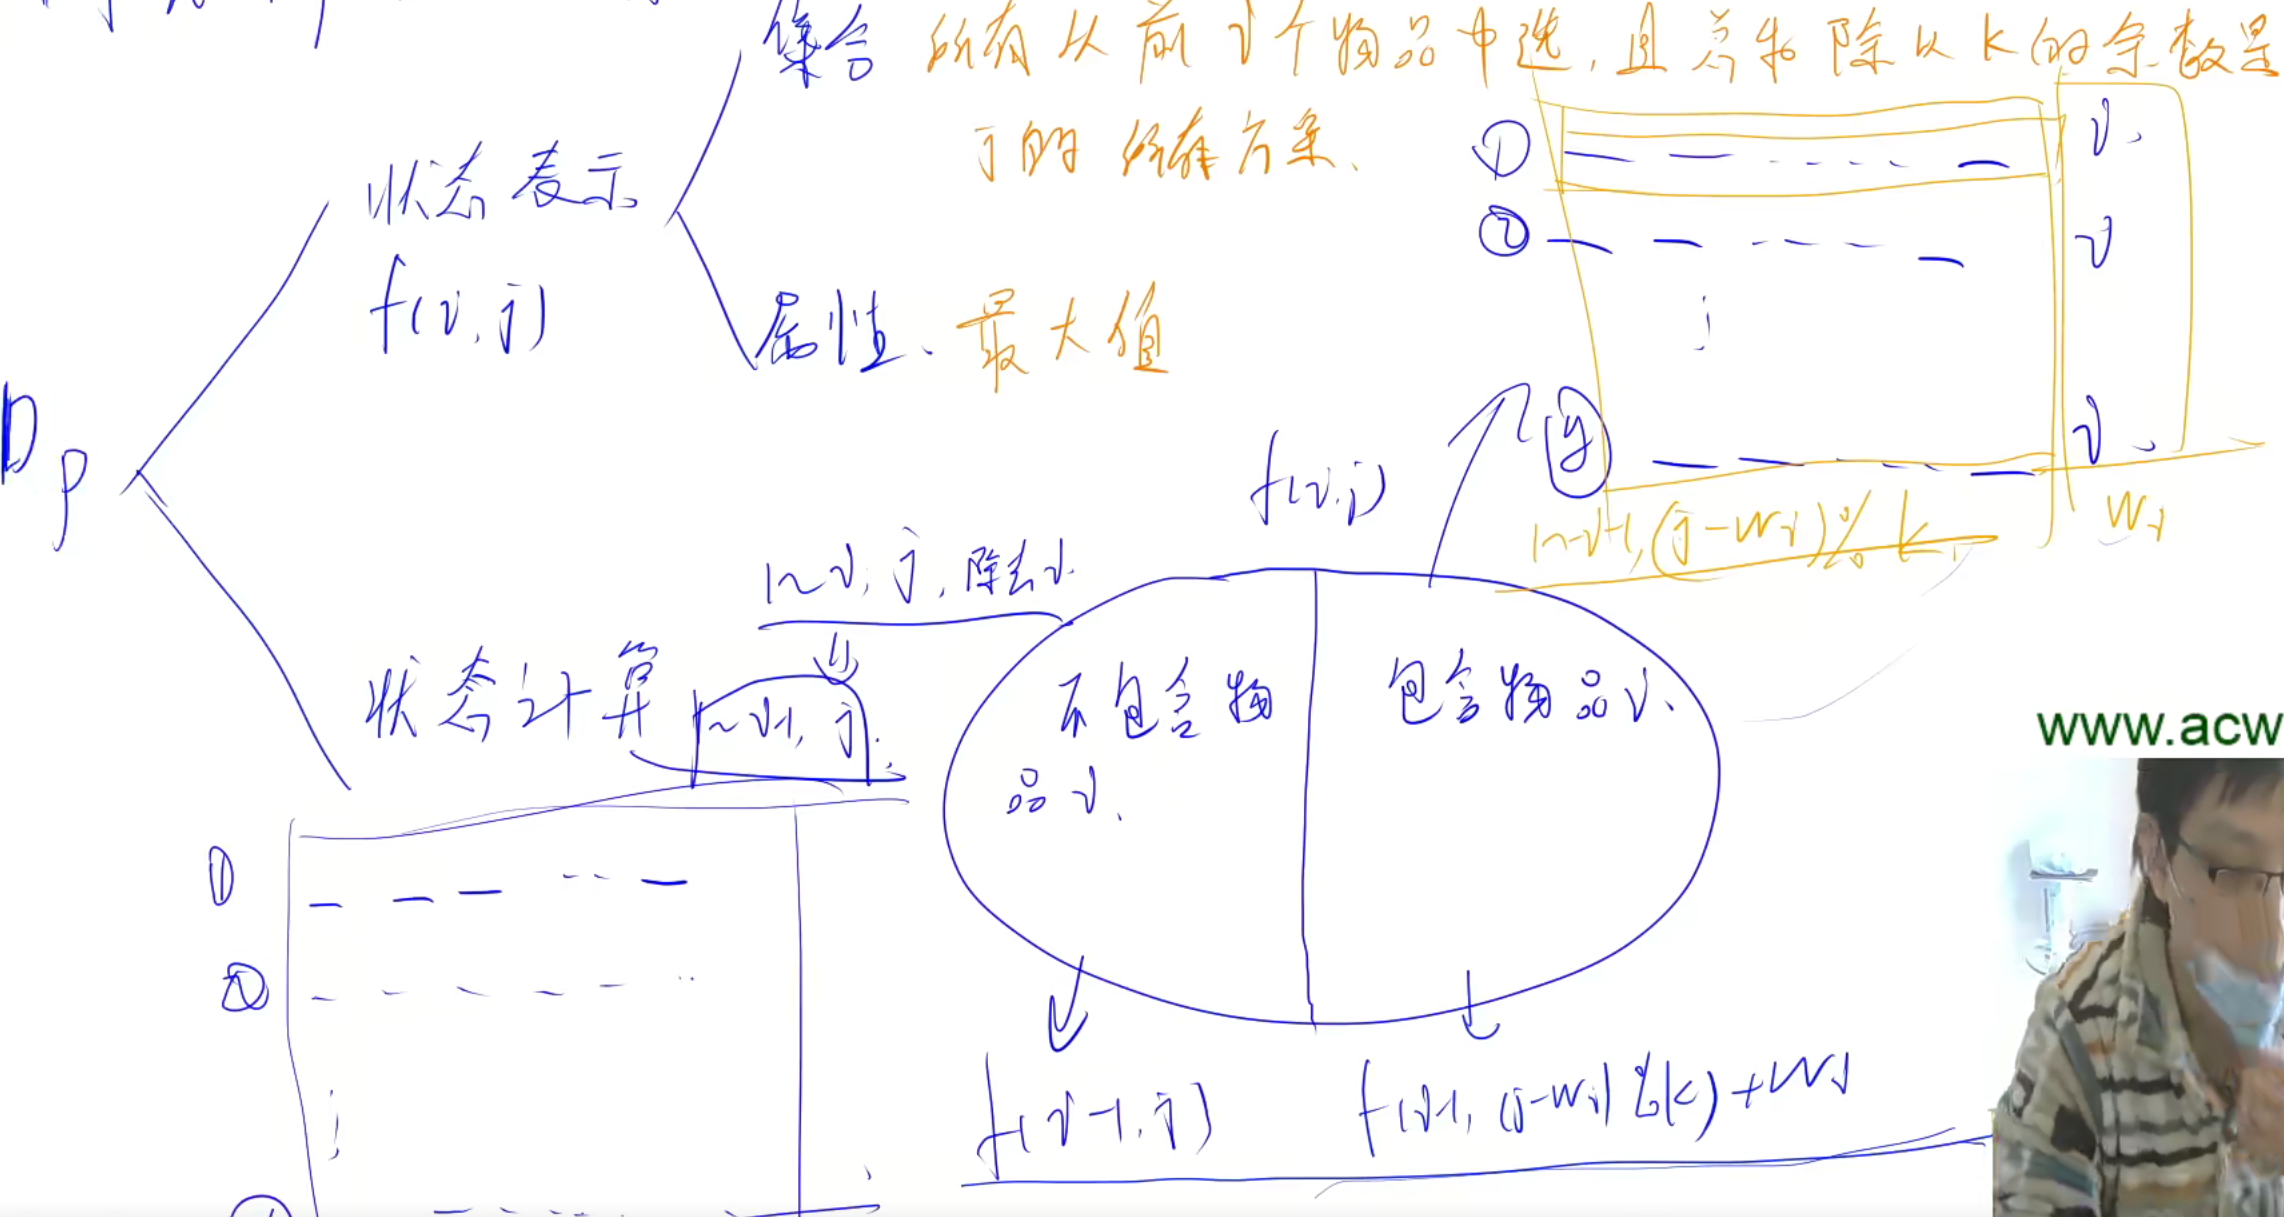 集合 所有从前i个物品中选,且总和除以k的余数是
j的所有方案.
状态表示
f(i, j)
属性、最大值
① i.
② i
i.
1~i-1, (j-wi)%k wi
DP
f(i, j)
1~i, j, 除去i.
状态计算 1~i-1, j.
不包含物
品i.
包含物品i.
www.acw
①
②
f(i-1, j) f(i-1, (j-wi)%k)+wi